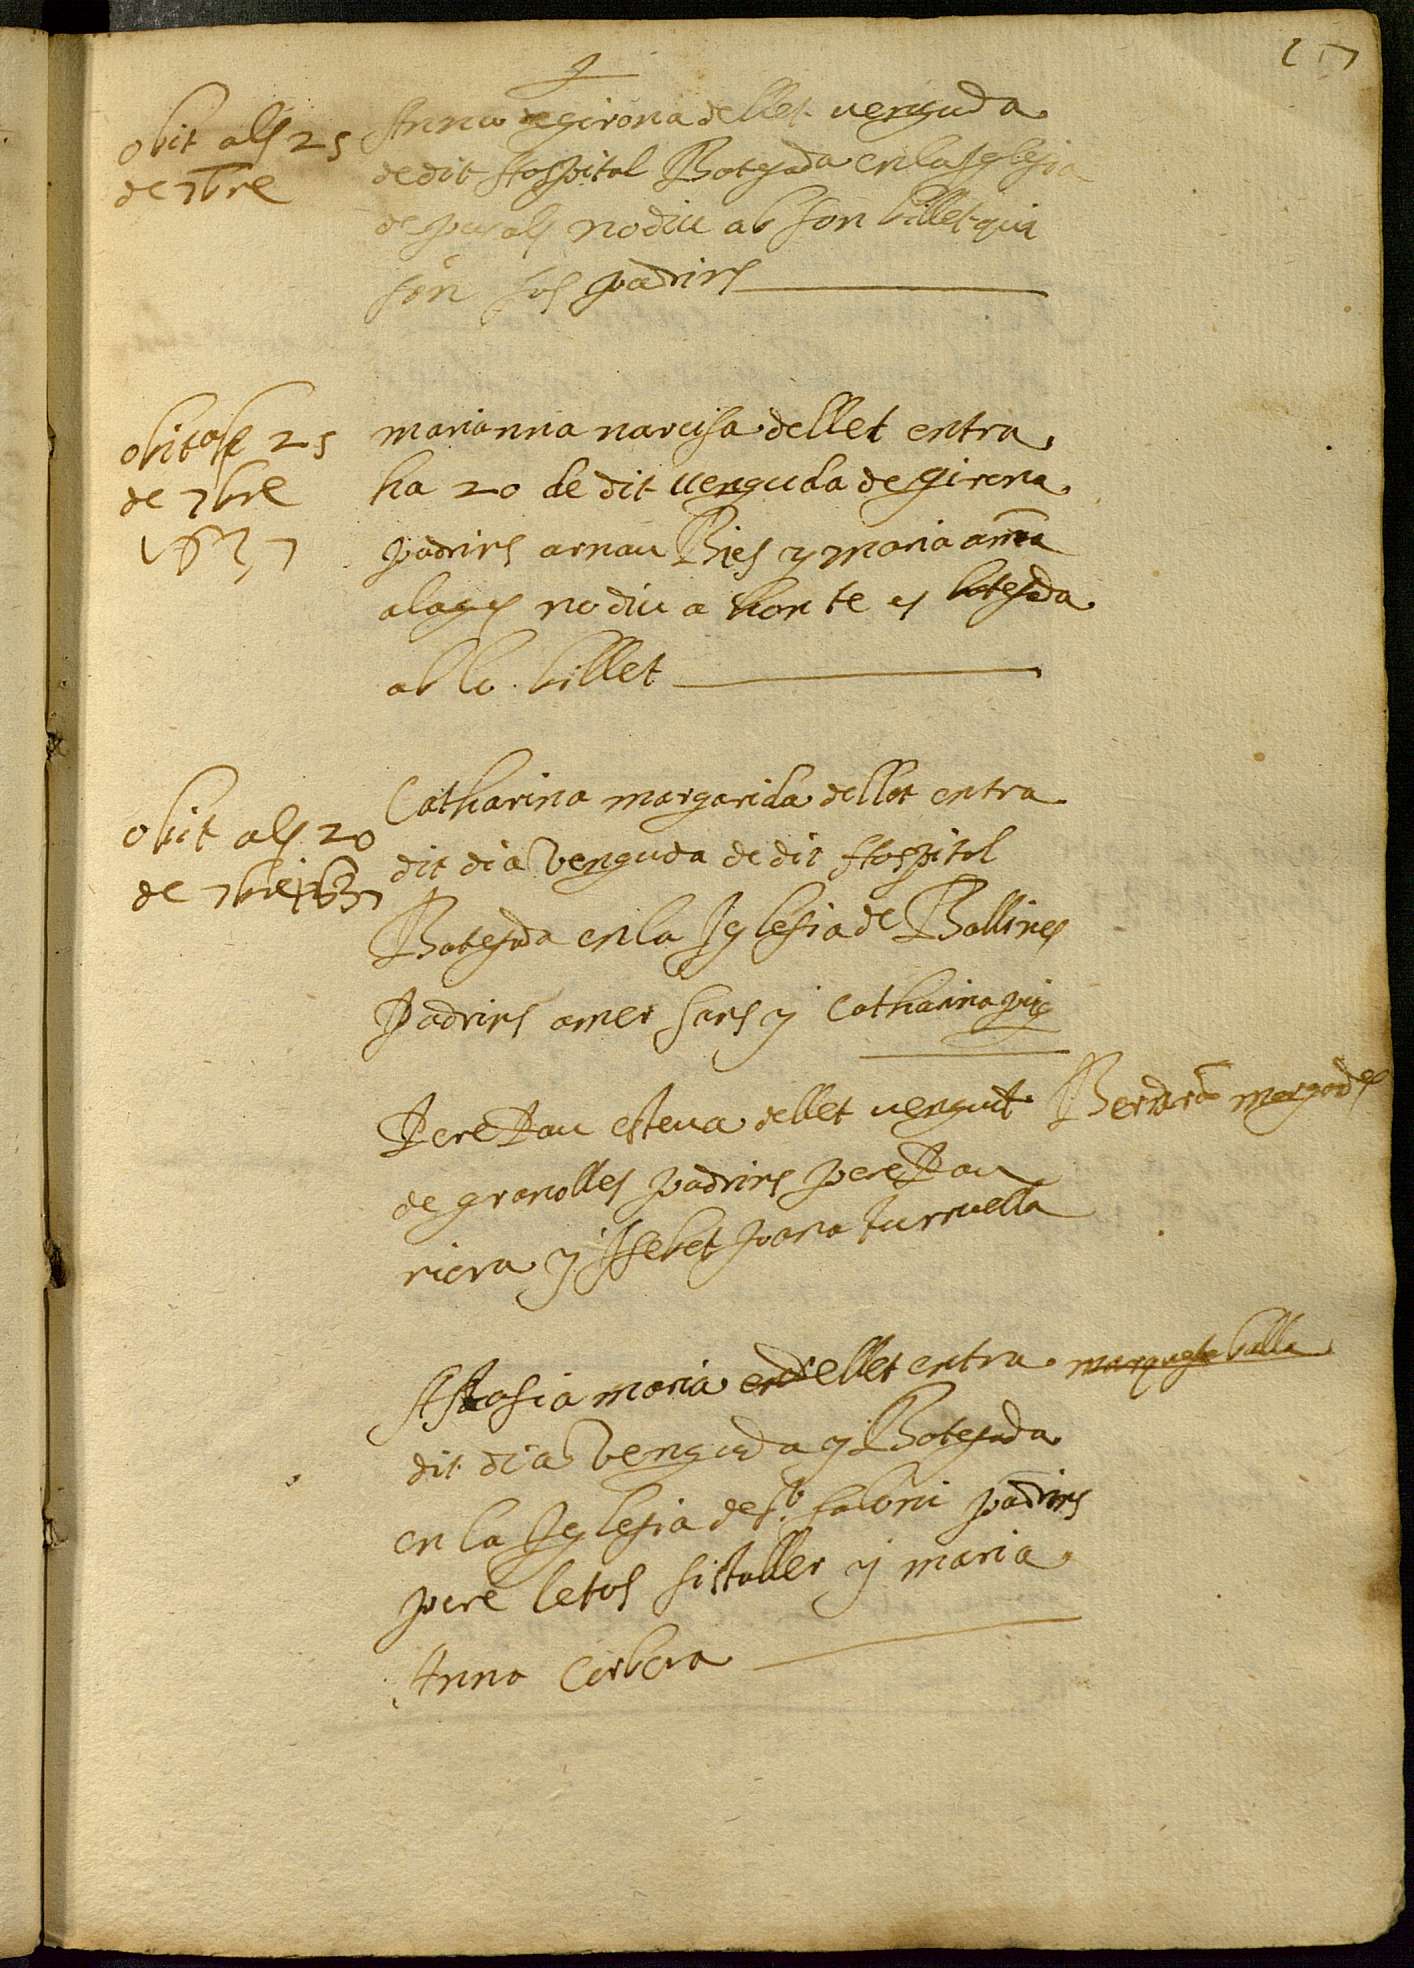 17
obit als 25
de 7bre
Anna de girona de llet venguda
de dit Hospital Batejada en la Iglesia
de no diu ab son billet qui
son sos padrins
obit als 25
de 7bre
1637
marianna narcisa de llet entra
ha 20 de dit venguda de girona
padrins arnau Bies y maria anna
no diu a hon te es batejada
ab lo billet
obit als 20
de 7bre 1637
Catharina margarida de llet entra
dit dia Venguda de dit Hospital
Batejada en la Iglesia de Ballines
Padrins amer sars y Catharina puig
Pere Pau esteva de llet vengut
de granolles padrins pere Pau
riera y Isebet Joana turruella
maria de llet entra
dit dia Venguda y Batejada
en la Iglesia de St saloni padrins
pere letos sistaller y maria
Anna Corbera